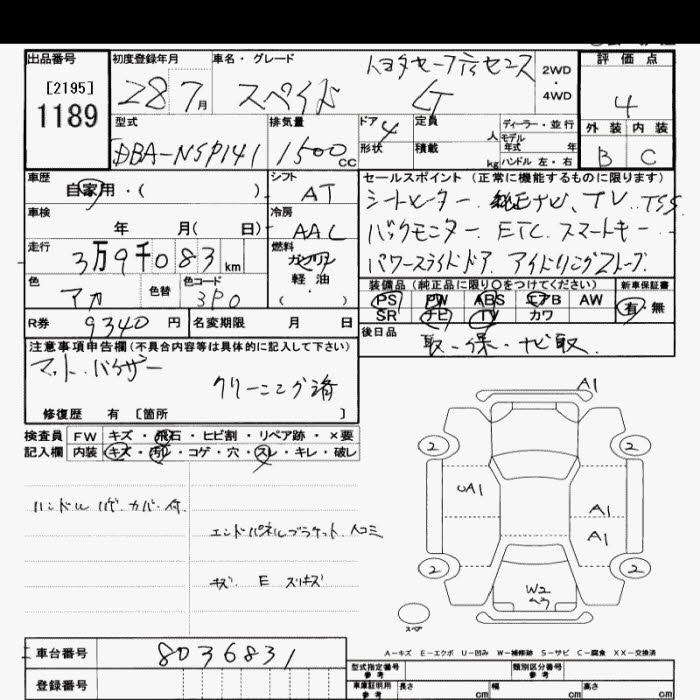 出品番号 初度登録年月 車名・グレード トヨタセーフティセンス 2WD ・ 4WD 評価点
[2195] 1189 28 7月 スペイド G 4
型式 排気量 ドア 4 定員 人 ディーラー・並行 外装 内装
DBA-NSP141 1500cc 形状 積載 kg モデル年式 年 ハンドル 左・右 B C
車歴 自家用・( ) シフト AT セールスポイント (正常に機能するものに限ります)
車検 年 月( 日) 冷房 AAC シートヒーター. 純正ナビ、TV、TSS
走行 3万9千083km 燃料 ガソリン 軽油 バックモニター. ETC. スマートキー
色 アカ 色替 色コード 3P0 パワースライドドア. アイドリングストップ.
装備品 (純正品に限り○をつけてください) 新車保証書
PS PW ABS エアB AW 有・無
SR ナビ TV カワ
R券 9340円 名変期限 月 日 後日品 取-保-ナビ取.
注意事項申告欄 (不具合内容等は具体的に記入して下さい)
マット.バイザー
クリーニング済
修復歴 有 〔箇所 〕
検査員 FW キズ・飛石・ヒビ割・リペア跡・×要
記入欄 内装 キズ・汚レ・コゲ・穴・スレ・キレ・破レ
A1
2 2
UA1 A1
A1
2 2
W2
スペア
ハンドル カバー付
エンドパネルブラケット. 凹コミ
キズ E スリキズ
A-キズ E-エクボ U-凹み W-補修跡 S-サビ C-腐食 XX-交換済
車台番号 8036831 型式指定番号 参考 類別区分番号 参考
登録番号 車庫証明用 参考 長さ cm 幅 cm 高さ cm